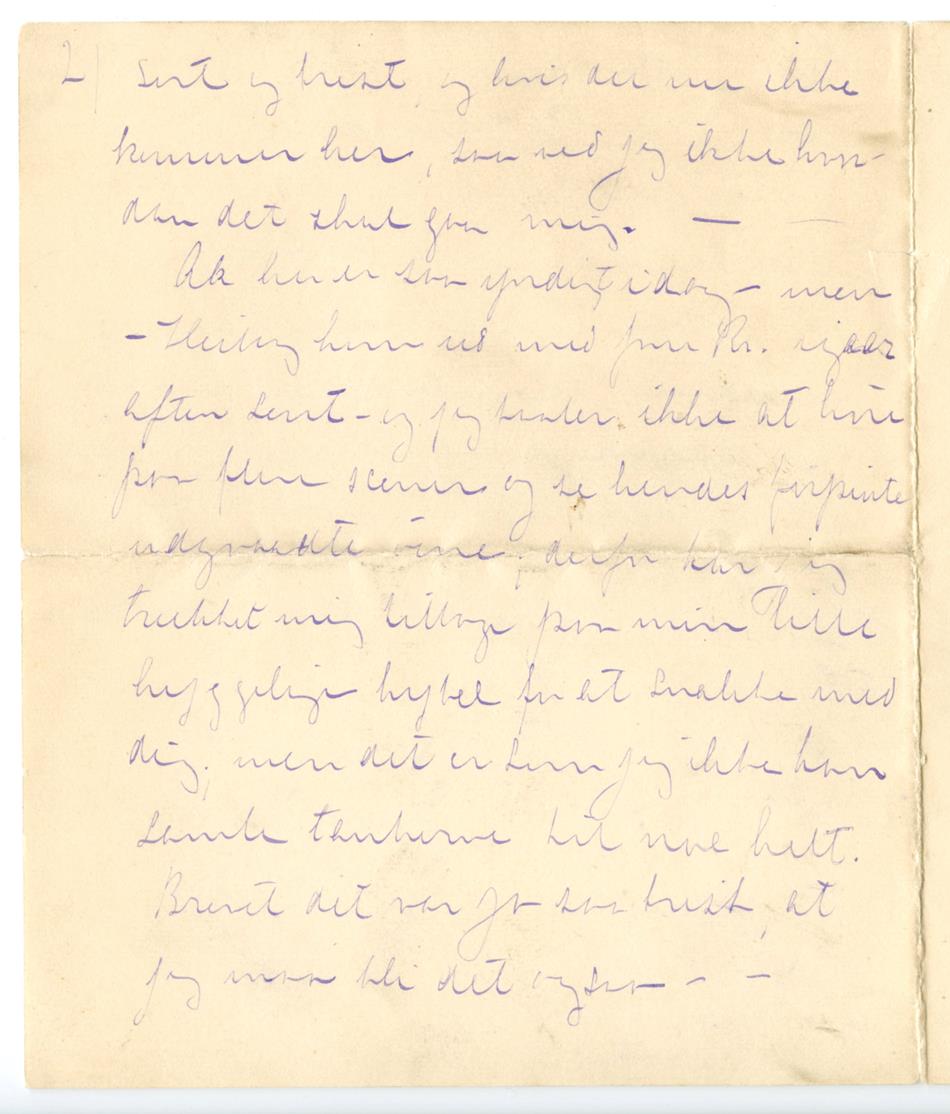 2) sort og trist, og hvis du nu ikke
kommer her, saa ved jeg ikke hvor-
dan det skal gaa mig. — —
Ak her er saa yndigt idag – men
– Heiberg kom ud med fru Kr. igaar
aften sent – og jeg taaler ikke at høre
paa flere scener og se hendes forpinte
udgraadte øine, derfor har jeg
trukket mig tilbage paa min lille
hyggelige hybel for at snakke med
dig, men det er som jeg ikke kan
samle tankerne til noe helt.
Brevet det var jo saa trist, at
jeg maa bli det ogsaa – –